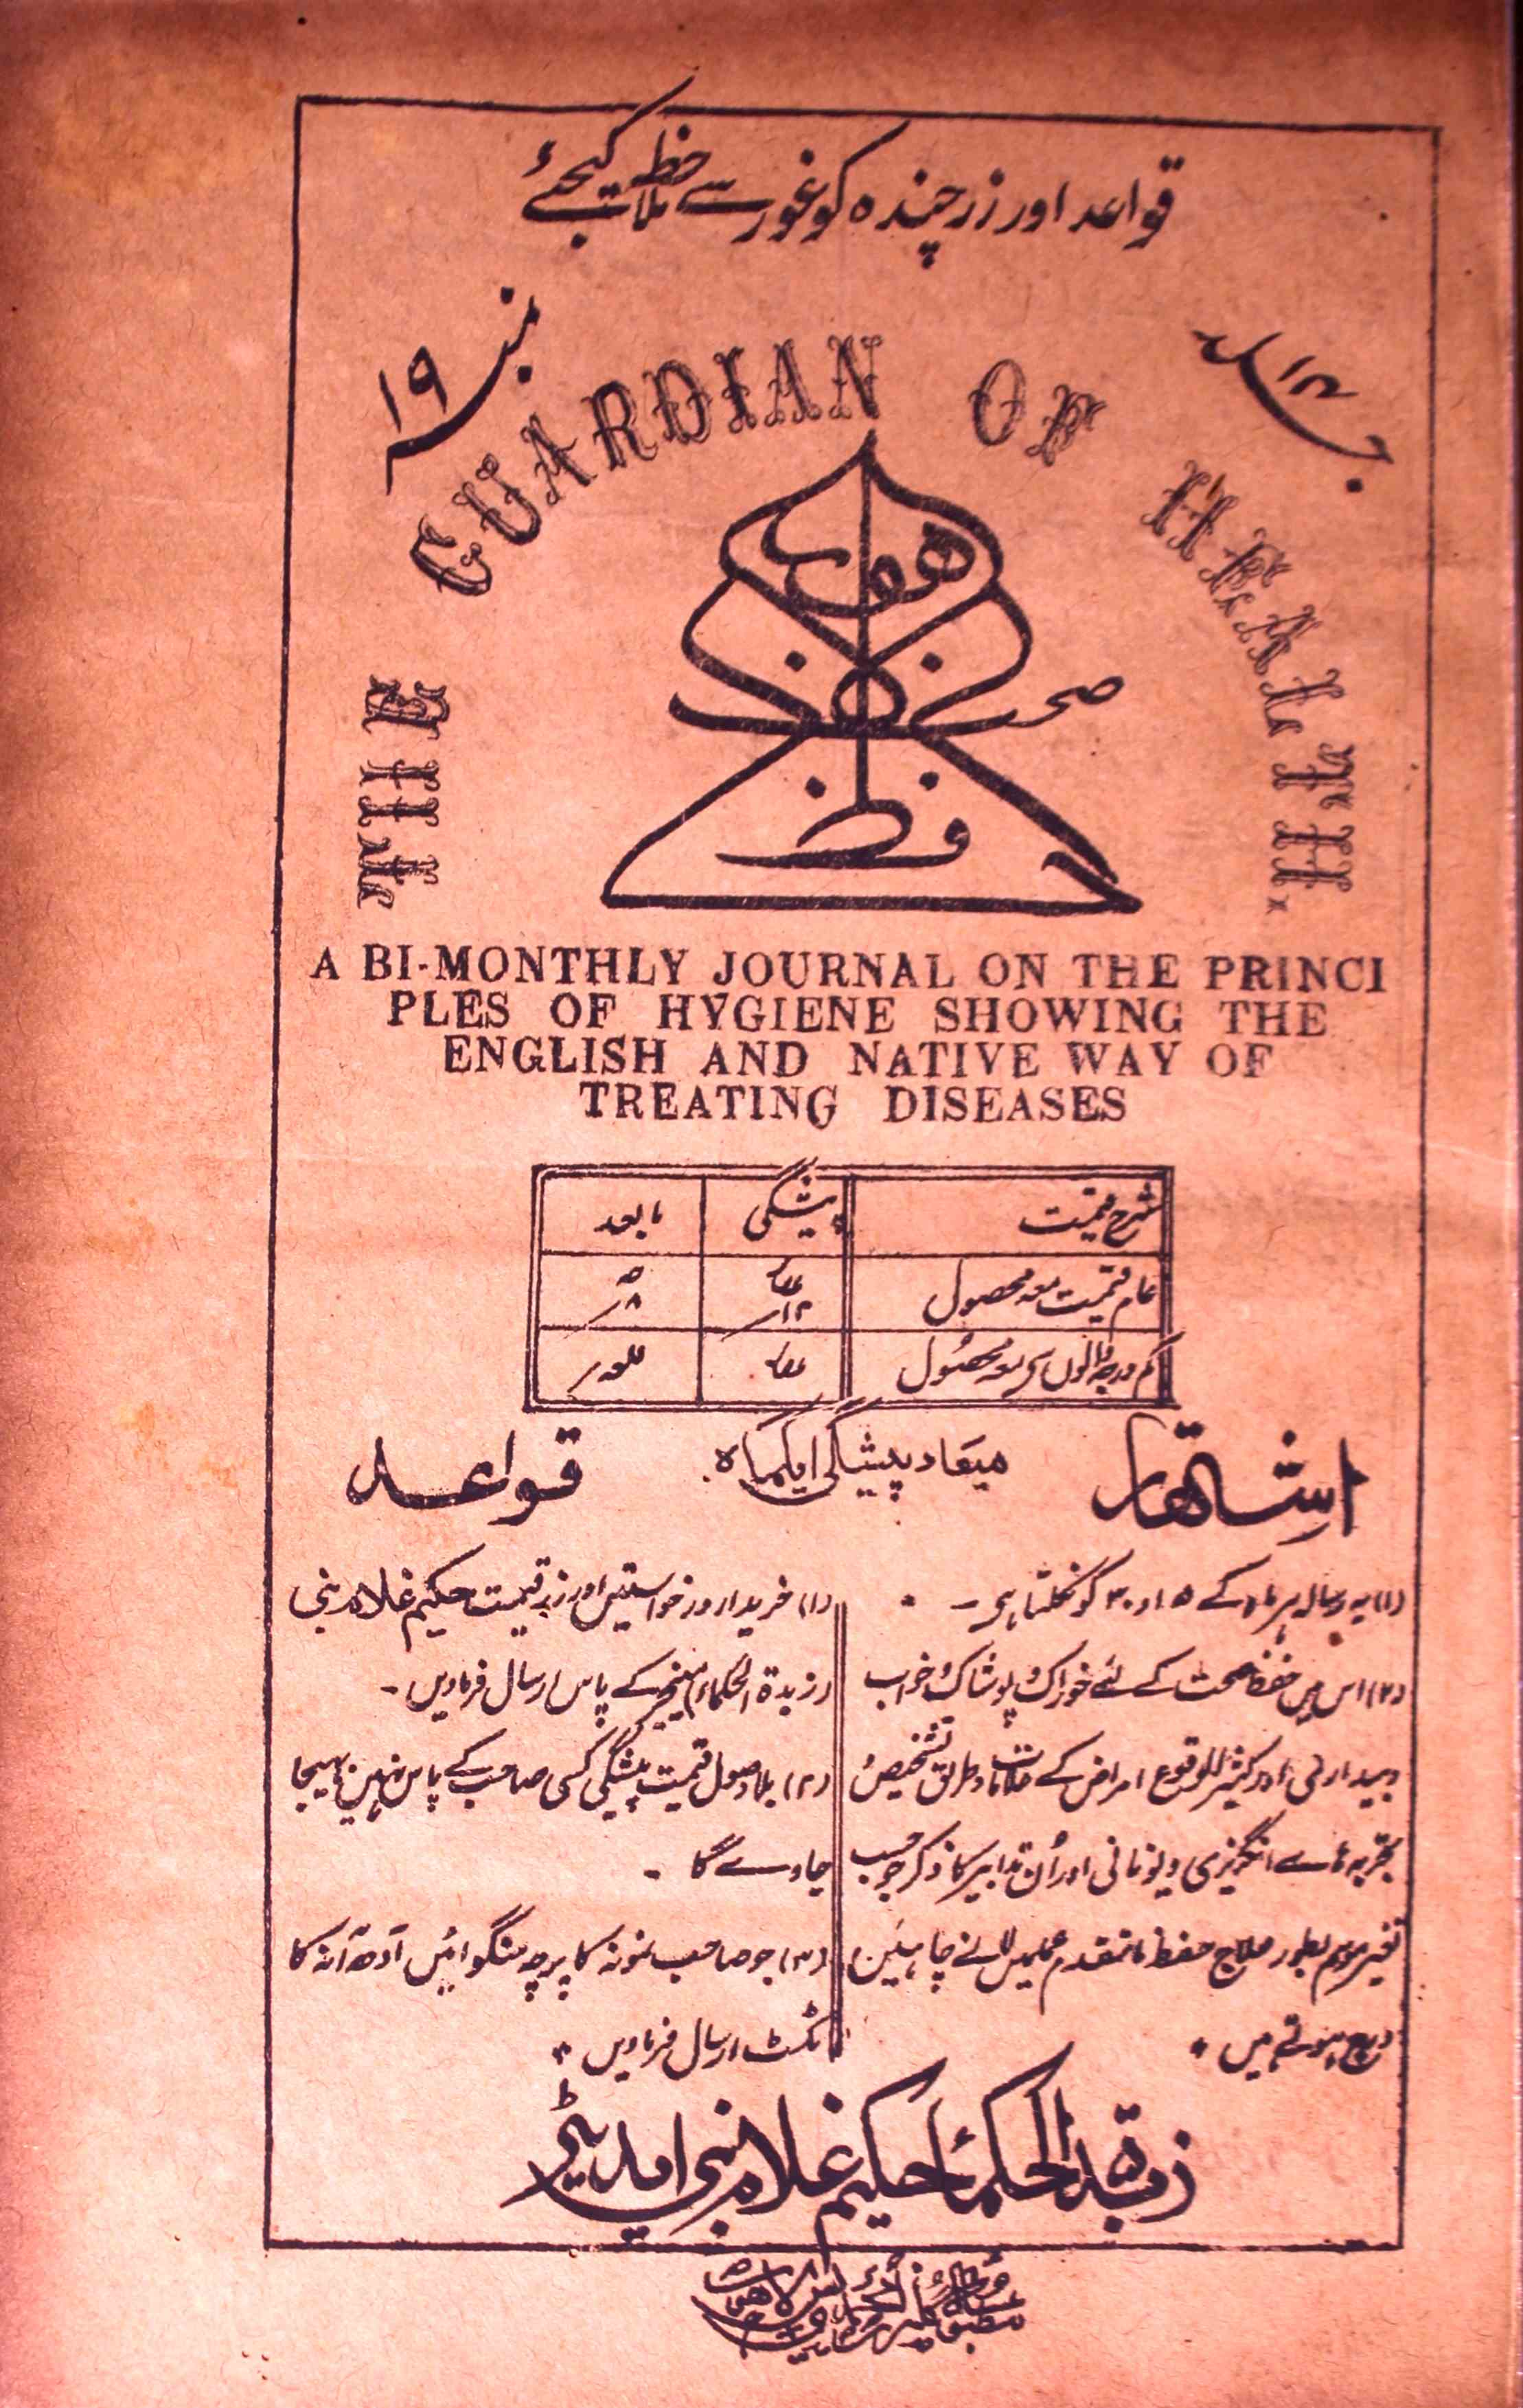 قواعد اور زر چندہ کو غور سے ملاحظہ کیجئے
جلد ۱۲
نمبر ۱۹
THE GUARDIAN OF HEALTH.
محافظ صحت لاہور
A BI-MONTHLY JOURNAL ON THE PRINCI
PLES OF HYGIENE SHOWING THE
ENGLISH AND NATIVE WAY OF
TREATING DISEASES
شرح قیمت پیشگی مابعد
عام قیمت معہ محصول
کم درجہ والوں سے معہ محصول
اشتہار
میعاد پیشگی ایکماہ
قواعد
(۱) یہ رسالہ ہر ماہ کے ۱۵ اور ۳۰ کو نکلتا ہے ۔
(۲) اس میں حفظ صحت کے لئے خوراک و پوشاک خواب
و بیداری اور کثیر الوقوع امراض کے علامات و طریق تشخیص و
تجربہ ہائے انگریزی و یونانی اور اُن تدابیر کا ذکر جو حسب
تغیر موسم بطور علاج حفظ ماتقدم عمل میں لانے چاہئیں
درج ہوتے ہیں
(۱) خریدار درخواستیں اور زر قیمت حکیم غلام نبی
زبدۃ الحکماء مینیجر کے پاس ارسال فرماویں ۔
(۲) بلا وصول قیمت پیشگی کسی صاحب کے پاس نہیں بھیجا
جاوے گا ۔
(۳) جو صاحب نمونہ کا پرچہ منگوائیں آدھ آنہ کا
ٹکٹ ارسال فرماویں
زبدۃ الحکماء حکیم غلام نبی ایڈیٹر